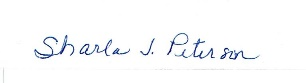 Sharla J. Peterson